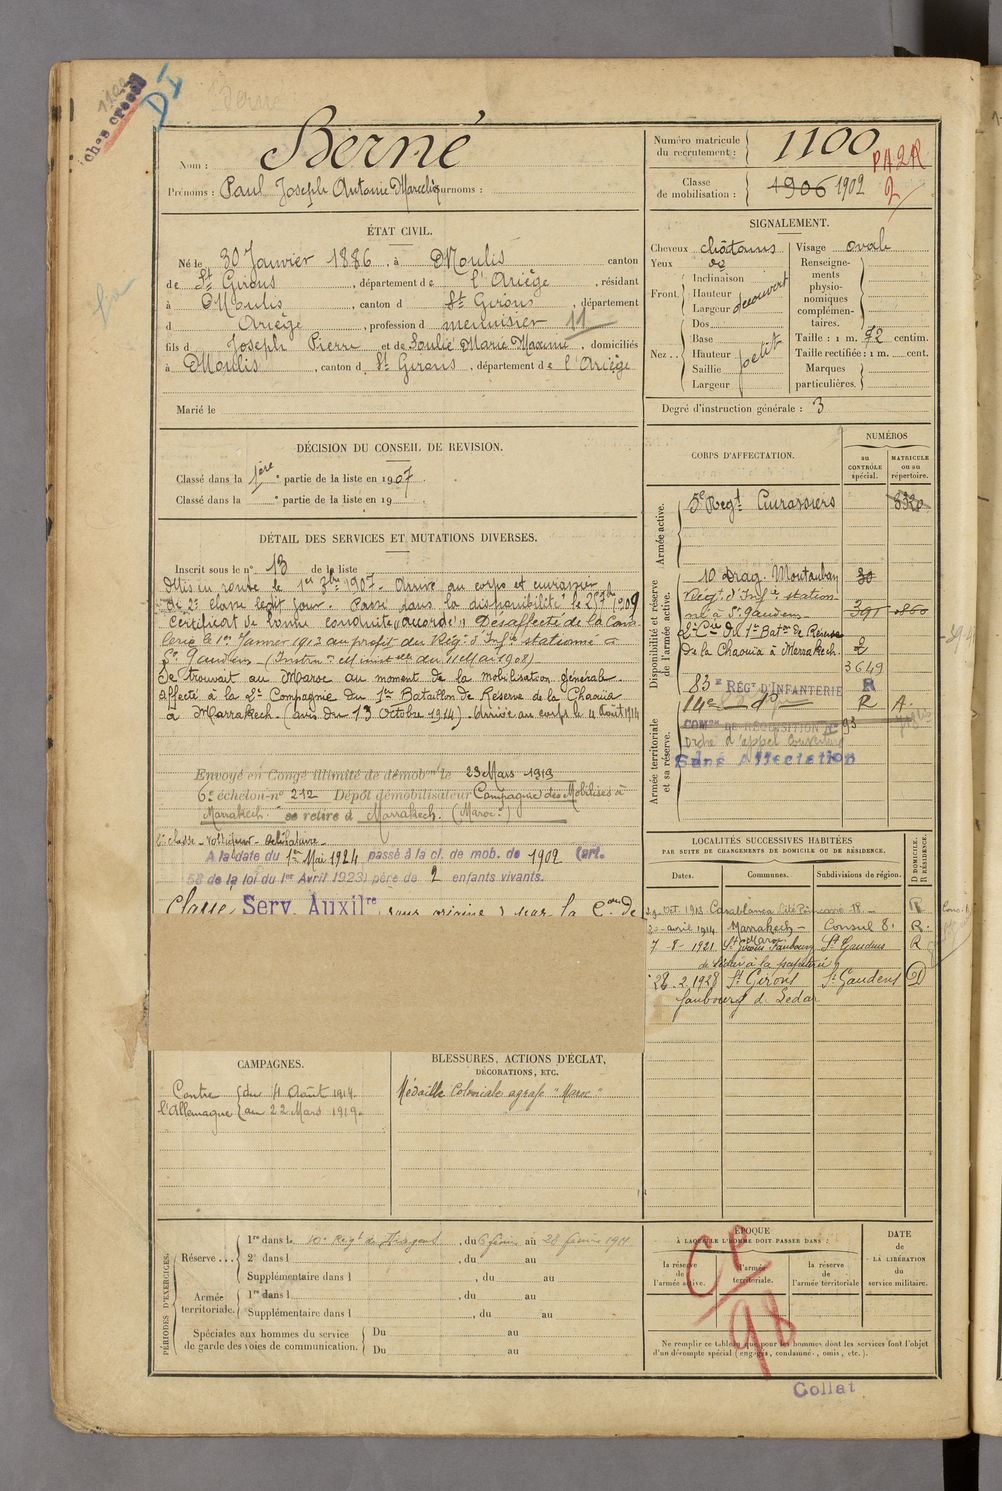 1100
D I
Nom : Berné
Prénoms : Paul Joseph Antonin Marcelin Surnoms :
Numéro matricule du recrutement : 1100
PA2R
2
Classe de mobilisation : 1906 1902
ÉTAT CIVIL.
Né le 30 Janvier 1886, à Moulis canton
de St Girons, département de l'Ariège, résidant
à Moulis, canton d St Girons, département
d Ariège, profession d meunisier 11
fils d Joseph Pierre et de Soulié Marie Maxime, domiciliés
à Moulis, canton d St Girons, département de l'Ariège
Marié le
SIGNALEMENT.
Cheveux châtains
Yeux
Front : Inclinaison
Hauteur
Largeur
découvert
Nez : Dos
Base
Hauteur
Saillie
Largeur
petit
Visage ovale
Renseignements physionomiques complémentaires.
Taille : 1 m. 72 centim.
Taille rectifiée : 1 m. cent.
Marques particulières.
Degré d'instruction générale : 3
DÉCISION DU CONSEIL DE REVISION.
Classé dans la 1ère partie de la liste en 1907
Classé dans la partie de la liste en 19
DÉTAIL DES SERVICES ET MUTATIONS DIVERSES.
Inscrit sous le n° 13 de la liste
Mis en route le 1er 8bre 1907. Arrivé au corps et cuirassier
de 2e classe ledit jour. Passé dans la disponibilité le 25 7bre 1909
Certificat de bonne conduite "accordé" Désaffecté de la Cava-
lerie le 1er Janvier 1912 au profit des Régts d'Infie stationné à
St Gaudens (Instron Ministelle du 11 Mai 1908)
Se trouvait au Maroc au moment de la mobilisation générale.
Affecté à la 2e Compagnie du 1er Bataillon de Réserve de la Chaouïa
à Marrakech. (avis du 13 Octobre 1914). Arrivé au corps le 4 Août 1914
Envoyé en Congé illimité de démobon le 23 Mars 1919
6e échelon n° 212 Dépôt démobilisateur Compagnie des Mobilisés à
Marrakech. se retire à Marrakech. (Maroc)
A la date du 1er Mai 1924 passé à la cl. de mob. de 1902 (art.
58 de la loi du 1er Avril 1923) père de 2 enfants vivants.
Classé Serv. Auxilre
CORPS D'AFFECTATION.
NUMÉROS
au CONTRÔLE spécial.
MATRICULE ou au répertoire.
Armée active.
5e Régt Cuirassiers 8320
Disponibilité et réserve de l'armée active.
10 Drag. Montauban 30
Régt d'Infie station-
né à St Gaudens 391
2e Cie du 1er Baton de Réserve 2
de la Chaouïa à Marrakech. 3649
83e RÉGt D'INFANTERIE R
14e do R A.
Armée territoriale et sa réserve.
COMon DE RÉQUISITION N° 93
Ordre d'appel
Sans Affectation
LOCALITÉS SUCCESSIVES HABITÉES
PAR SUITE DE CHANGEMENTS DE DOMICILE OU DE RÉSIDENCE.
Dates. Communes. Subdivisions de région. D DOMICILE. R RÉSIDENCE.
Oct. 1913 Casablanca R
avril 1914 Marrakech - Maroc Consul 8. R.
7 - 8 - 1921 St Girons Faubourg St Gaudens R
28. 2. 1928 St Girons St Gaudens D
faubourg de Ledar
CAMPAGNES.
Contre l'Allemagne du 4 Août 1914.
au 22 Mars 1919.
BLESSURES, ACTIONS D'ÉCLAT,
DÉCORATIONS, ETC.
Médaille Coloniale agrafe "Maroc"
PÉRIODES D'EXERCICES.
Réserve... 1re dans le 10e Régt de Dragons, du 6 février au 28 février 1911
2e dans l , du au
Supplémentaire dans l , du au
Armée territoriale. 1re dans l , du au
Supplémentaire dans l , du au
Spéciales aux hommes du service de garde des voies de communication. Du au
Du au
ÉPOQUE
À LAQUELLE L'HOMME DOIT PASSER DANS :
la réserve de l'armée active.
l'armée territoriale.
la réserve de l'armée territoriale
DATE de LA LIBÉRATION du service militaire.
98
Ne remplir ce tableau que pour les hommes dont les services font l'objet
d'un décompte spécial (engagés, condamnés, omis, etc.).
Collat